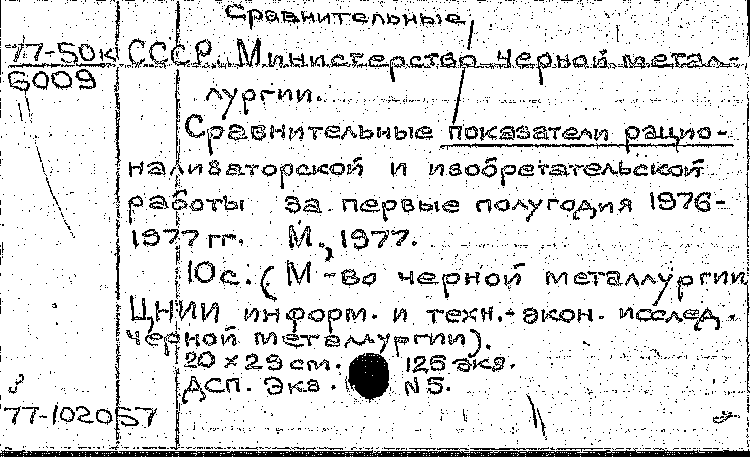 Сравнительные
77-50к СССР. Министерство черной метал-
6009
лургии.
Сравнительные показатели рацио-
нализаторской и изобретательской
работы за первые полугодия 1976-
1977 гг. М., 1977.
10с. (М-во черной металлургии
ЦНИИ информ. и техн.-экон. исслед.
черной металлургии).
20 x 29 см. 125 экз.
ДСП. Экз. N 5.
77-102057